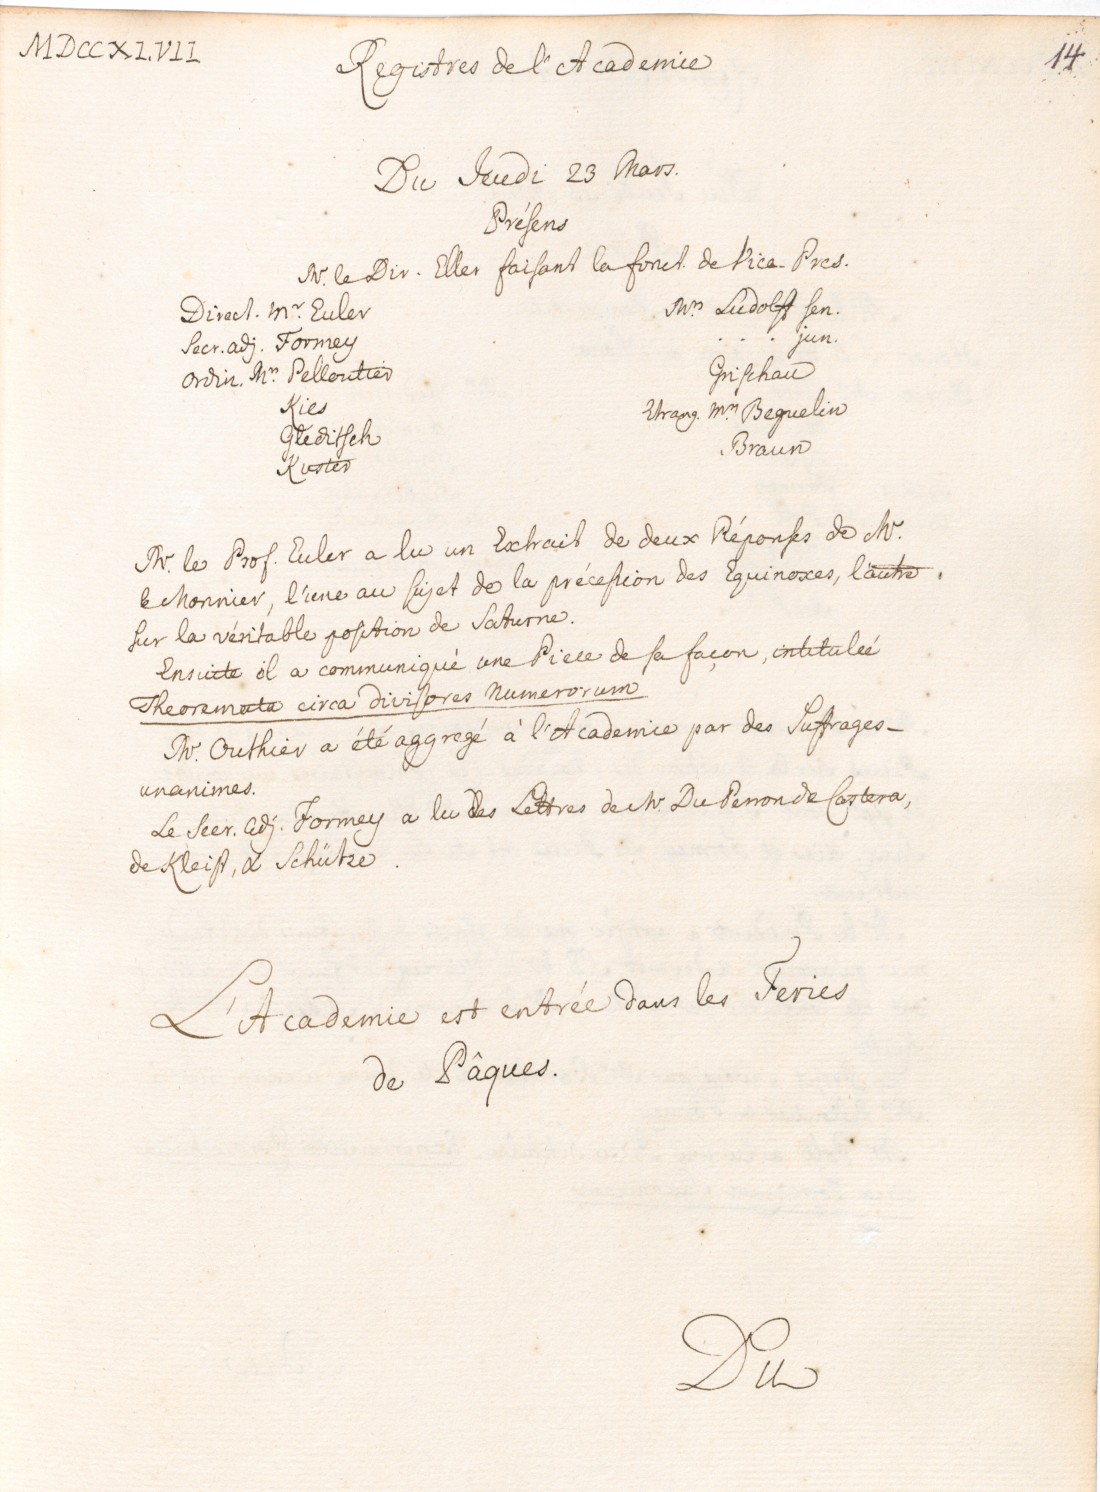 MDCCXLVII
Registres de l'Academie
14
Du Jeudi 23 Mars.
Présens
Mr. le Dir. Eller faisant la fonct. de Vice-Pres.
Direct. Mr. Euler
Secr. adj. Formey
Ordin. Mrs. Pelloutier
Kies
Gleditsch
Kuster
Mrs. Ludolff sen.
. . . jun.
Grischau
Etrang. Mrs. Beguelin
Braun
Mr. le Prof. Euler a lu un Extrait de deux Réponses de Mr.
le Monnier, l'une au sujet de la précession des Equinoxes, l'autre
sur la véritable position de Saturne.
Ensuite il a communiqué une Piece de sa façon, intitulée
Theoremata circa divisores Numerorum
Mr. Outhier a été aggregé à l'Academie par des Suffrages
unanimes.
Le Secr. adj. Formey a lu des Lettres de Mr. Du Perron de Castera,
de Kleist, & Schütze.
L'Academie est entrée dans les Feries
de Pâques.
Du